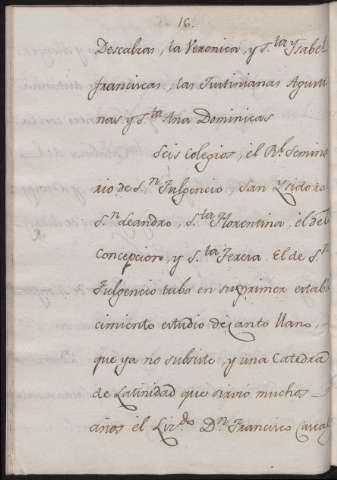 16.
Descalzas, la Veronica, y S.ta Ysabel
franciscas, las Justinianas Agusti
nas y S.ta Ana Dominicas
Seis Colegios, el R.l Semina
rio de S.n Fulgencio, San Ysidoro
S.n Leandro, S.ta Florentina, el del
Concepcion, y S.ta Teresa. El de S.n
Fulgencio tubo en su primer estable
cimiento estudio de canto llano,
que ya no subsiste, y una Catedra
de Latinidad que sirvio muchos
años el Liz.do D.n Francisco Cascal